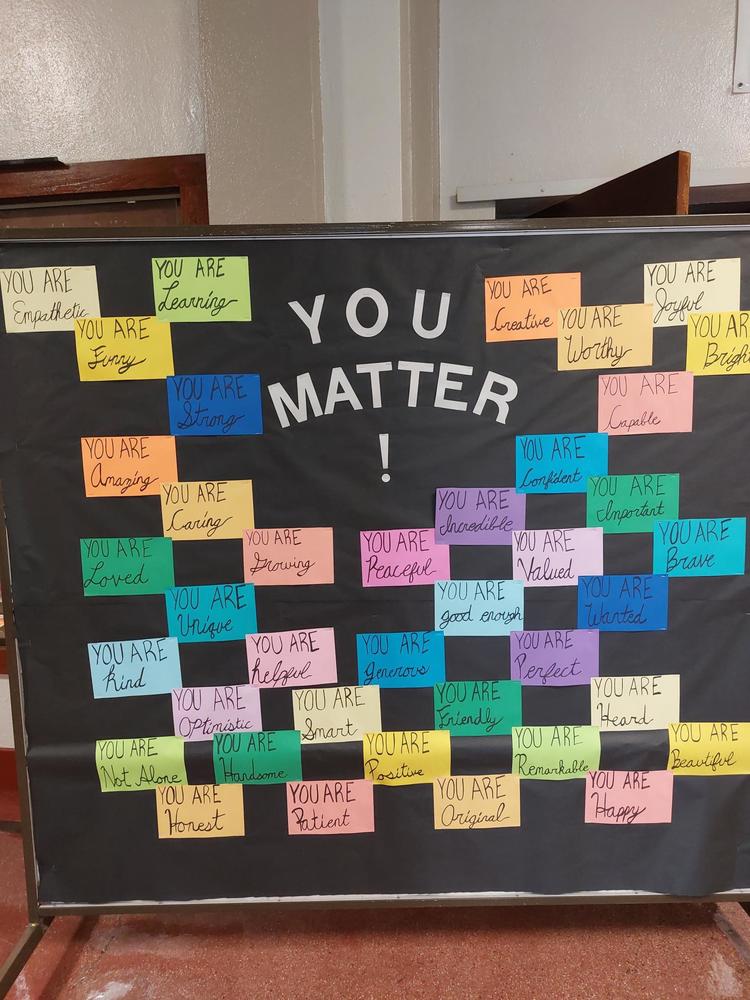 YOU
MATTER
!
YOU ARE
Empathetic
YOU ARE
Learning
YOU ARE
Funny
YOU ARE
Strong
YOU ARE
Amazing
YOU ARE
Caring
YOU ARE
Loved
YOU ARE
Growing
YOU ARE
Unique
YOU ARE
Kind
YOU ARE
helpful
YOU ARE
Optimistic
YOU ARE
Smart
YOU ARE
Not Alone
YOU ARE
Handsome
YOU ARE
Honest
YOU ARE
Patient
YOU ARE
Creative
YOU ARE
Joyful
YOU ARE
Worthy
YOU ARE
Bright
YOU ARE
Capable
YOU ARE
Confident
YOU ARE
Important
YOU ARE
Incredible
YOU ARE
Peaceful
YOU ARE
Valued
YOU ARE
Brave
YOU ARE
good enough
YOU ARE
Wanted
YOU ARE
Generous
YOU ARE
Perfect
YOU ARE
Friendly
YOU ARE
Heard
YOU ARE
Positive
YOU ARE
Remarkable
YOU ARE
Beautiful
YOU ARE
Original
YOU ARE
Happy